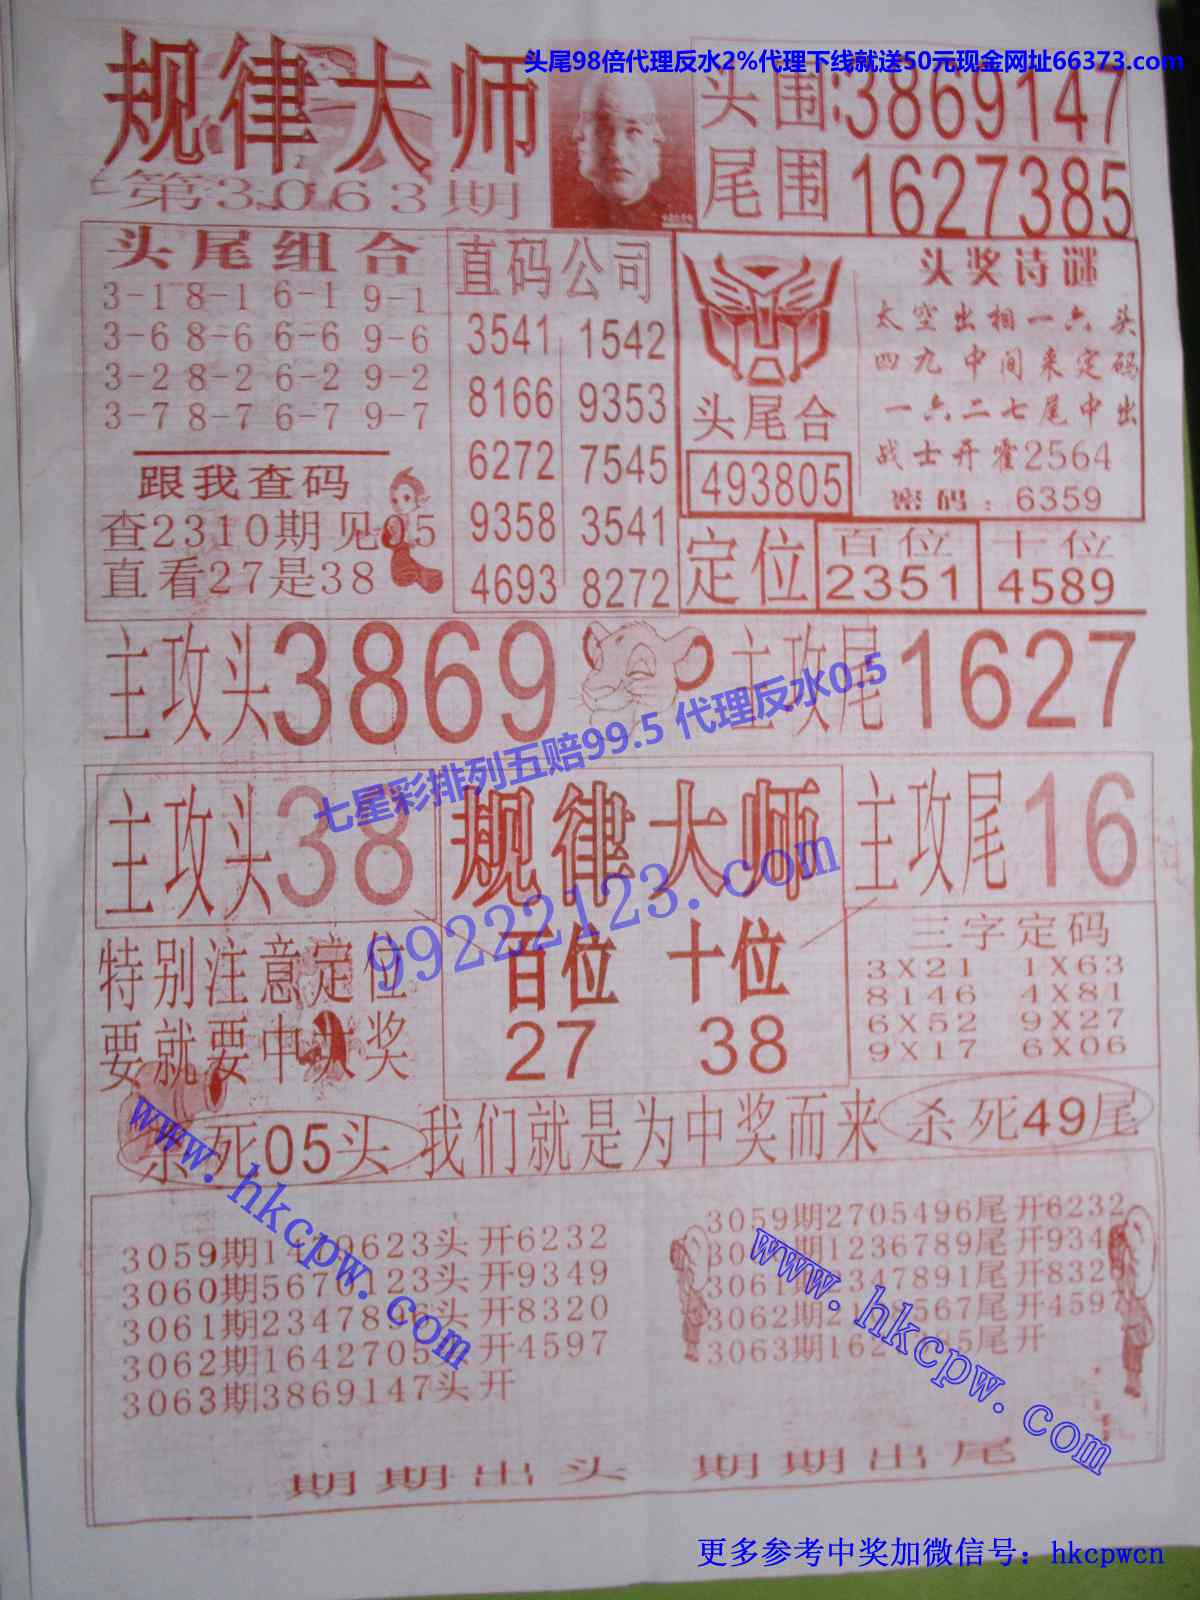 头尾98倍代理反水2%代理下线就送50元现金网址66373.com
规律大师
第3063期
头围:3869147
尾围 1627385
头尾组合
3-1 8-1 6-1 9-1
3-6 8-6 6-6 9-6
3-2 8-2 6-2 9-2
3-7 8-7 6-7 9-7
跟我查码
查2310期见05
直看27是38
直码公司
3541 1542
8166 9353
6272 7545
9358 3541
4693 8272
头尾合
493805
头奖诗谜
太空出相一六头
四九中间来定码
一六二七尾中出
战士开霍2564
密码:6359
定位
百位
2351
十位
4589
主攻头3869
主攻尾1627
七星彩排列五赔99.5 代理反水0.5
99222123.com
主攻头38
规律大师
主攻尾16
特别注意定位
要就要中大奖
百位 十位
27 38
三字定码
3X21 1X63
8146 4X81
6X52 9X27
9X17 6X06
杀死05头
我们就是为中奖而来
杀死49尾
www.hkcpw.com
3059期1 0623头开6232
3060期567 123头开9349
3061期234789 头开8320
3062期1642705 开4597
3063期3869147头开
www.hkcpw.com
3059期2705496尾开6232
期1236789尾开934
3061期 347891尾开832
3062期2 567尾开4597
3063期162 85尾开
期期出头 期期出尾
更多参考中奖加微信号：hkcpwcn